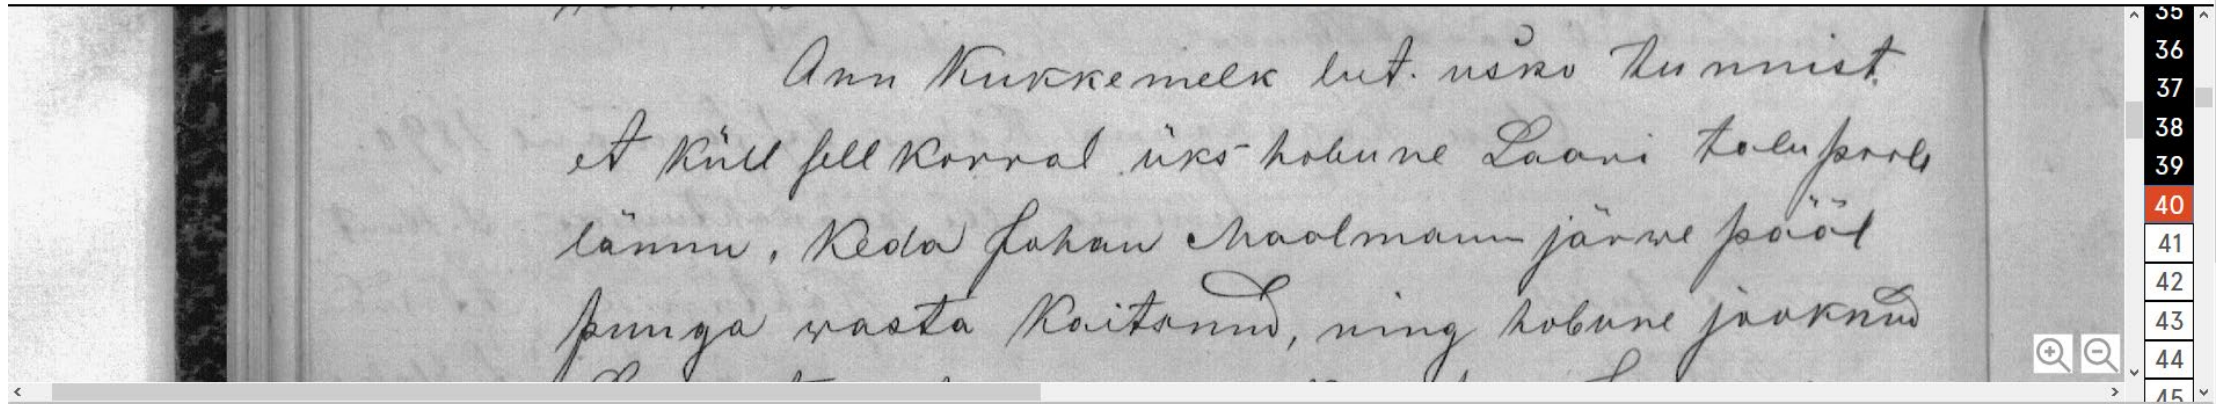 Ann Kukkemelk lut. usko tunnist.
et küll sell korral üks hobune Laari talu poole
lännu, keda Johan Maalmann järwe pääl
puuga wasta kaitsnud, ning hobune jooknud
35
36
37
38
39
40
41
42
43
44
45